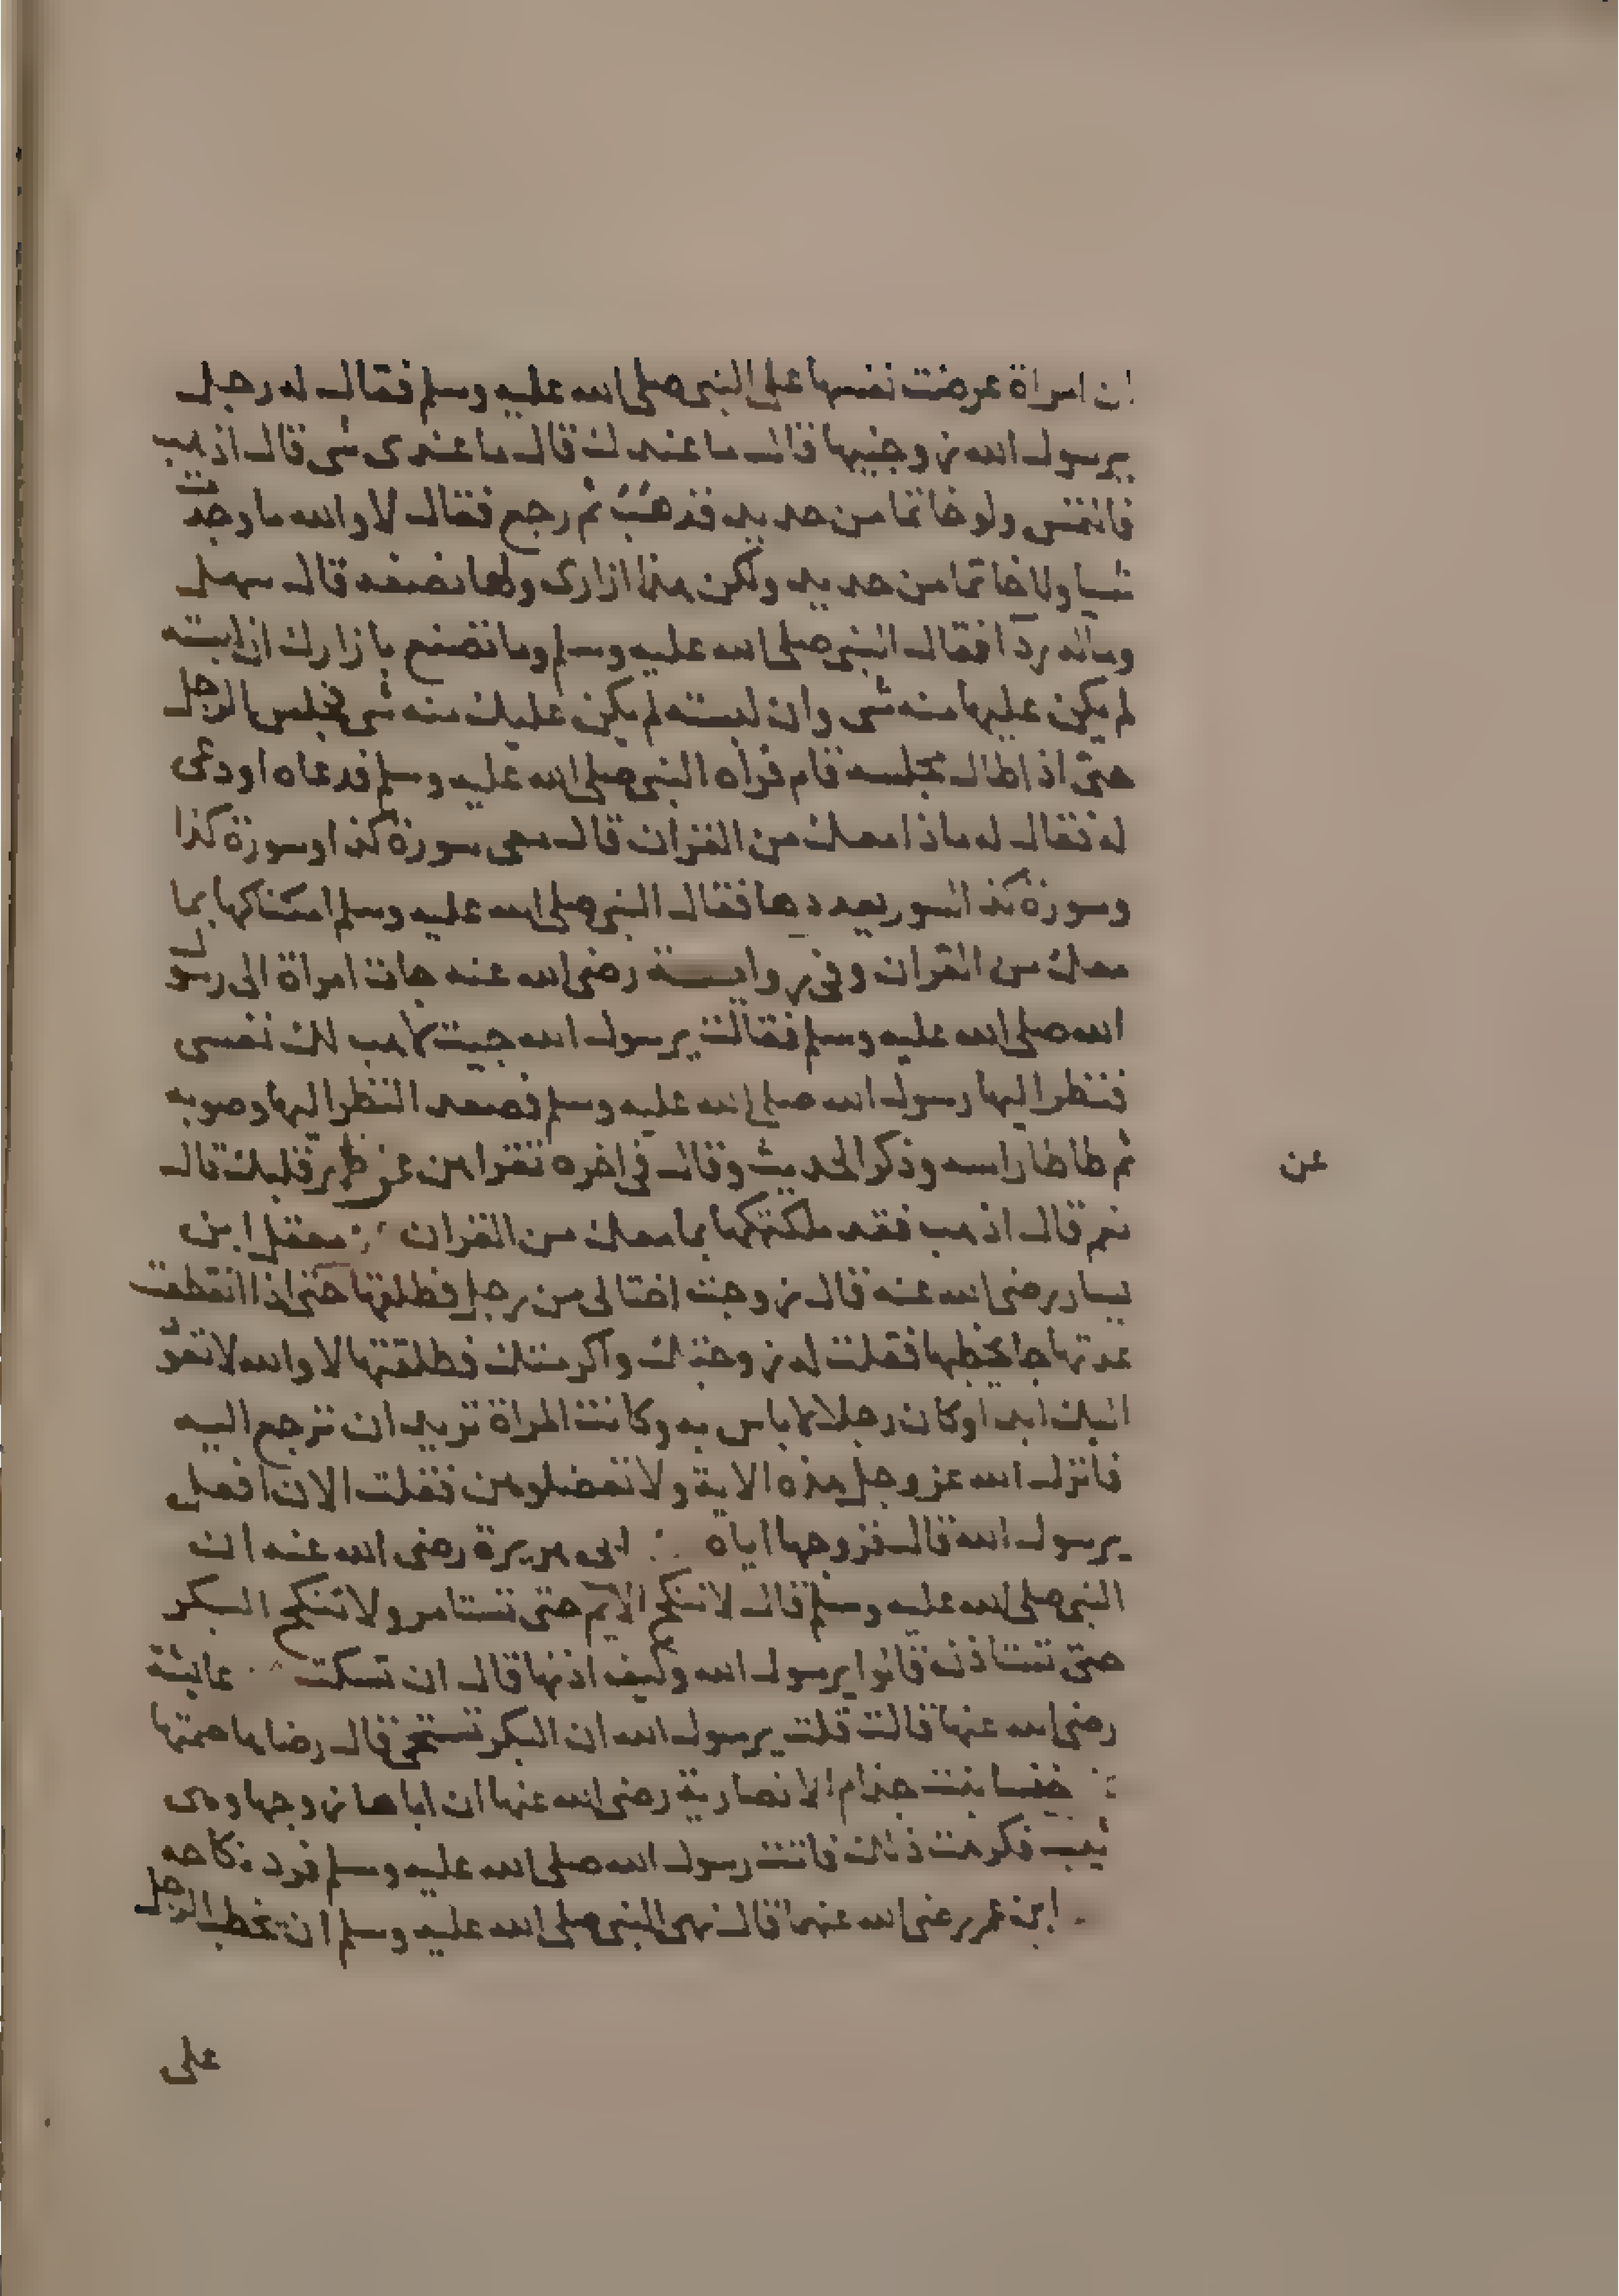 ان امراة عرضت نفسها على النبي صلى الله عليه وسلم فقال له رجل
يرسول الله زوجنيها قال ما عندك قال ما عندى شى قال اذهب
فالتمس ولو خاتما من حديد فذهب ثم رجع فقال لا والله ما وجدت
شيا ولا خاتما من حديد ولكن هذا ازارى ولها نصفه قال سهل
وماله ردا فقال النبي صلى الله عليه وسلم وما تصنع بازارك ان لبسته
لم يكن عليها منه شى وان لبسته لم يكن عليك منه شى فجلس الرجل
حتى اذا طال مجلسه قام فراه النبي صلى الله عليه وسلم فدعاه او دعى
له فقال له ماذا معك من القران قال معى سورة كذا وسورة كذا
وسورة كذا لسور يعددها فقال النبي صلى الله عليه وسلم امكناكها بما
معك من القران وفي رواية رضى الله عنه جات امراة الى رسول
الله صلى الله عليه وسلم فقالت يرسول الله جيت لاهب لك نفسى
فنظر اليها رسول الله صلى الله عليه وسلم فصعد النظر اليها وصوبه
ثم طاطا راسه وذكر الحديث وقال في اخره تقراهن عن ظهر قلبك قال
عن
نعم قال اذهب فقد ملكتكها بما معك من القران معقل ابن
يسار رضى الله عنه قال زوجت اختا لى من رجل فطلقها حتى اذا انقطعت
عدتها جا يخطبها فقلت له زوجتك واكرمتك فطلقتها لا والله لا تعود
اليك ابدا وكان رجلا لا باس به وكانت المراة تريد ان ترجع اليه
فانزل الله عز وجل هذه الاية ولا تعضلوهن فقلت الان افعل
يرسول الله قال فزوجها اياه ابى هريرة رضى الله عنه ان
النبي صلى الله عليه وسلم قال لا تنكح الايم حتى تستامر ولا تنكح البكر
حتى تستاذن قالوا يرسول الله وكيف اذنها قال ان تسكت عايشة
رضى الله عنها قالت قلت يرسول الله ان البكر تستحى قال رضاها صمتها
خنسا بنت خذام الانصارية رضى الله عنها ان اباها زوجها وهى
ثيب فكرهت ذلك فاتت رسول الله صلى الله عليه وسلم فرد نكاحه
ابن عمر رضى الله عنهما قال نهى النبي صلى الله عليه وسلم ان يخطب الرجل
على